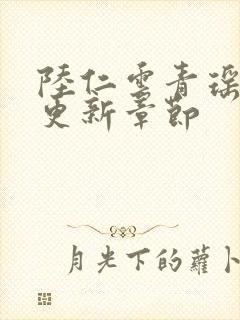 陸仁雲青瑶
更新章節
月光下的蘿卜